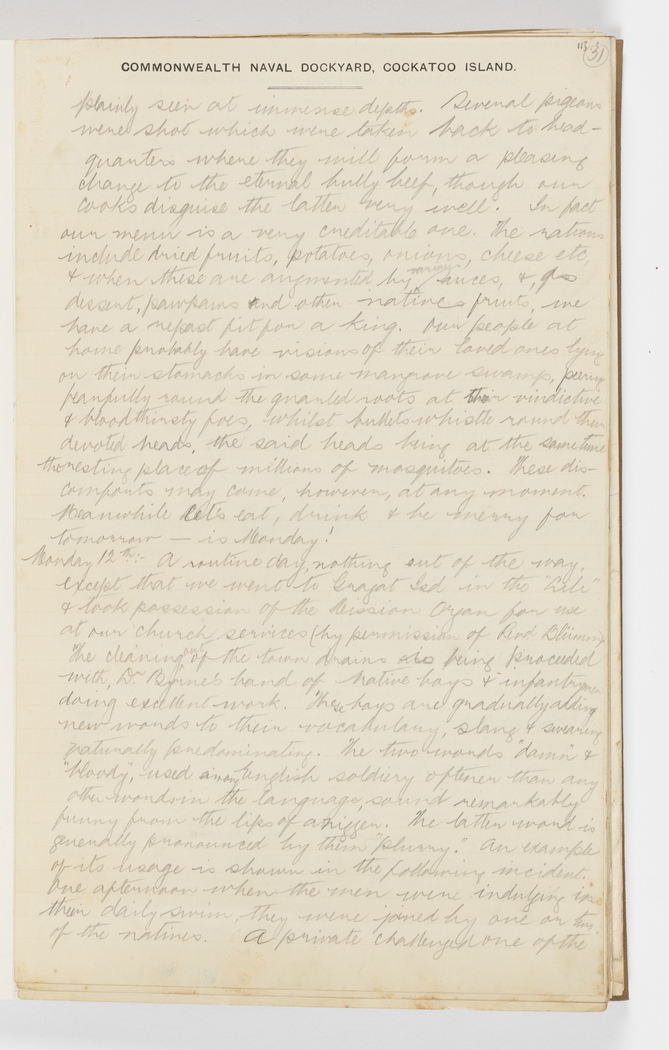 113 31
COMMONWEALTH NAVAL DOCKYARD, COCKATOO ISLAND.
plainly seen at immense depths. Several pigeons
were shot which were taken back to head-
quarters where they will form a pleasing
change to the eternal bully beef, though our
cooks disguise the latter very well. In fact
our menu is a very creditable one. The rations
include dried fruits, potatoes, onions, cheese etc,
& when these are augmented by various sauces, &, as
dessert, pawpaws and other native fruits, we
have a repast fit for a king. Our people at
home probably have visions of their loved ones lying
on their stomachs in some mangrove swamp, peering
fearfully round the gnarled roots at their vindictive
& bloodthirsty foes, whilst bullets whistle round their
devoted heads, the said heads being at the same time
the resting place of millions of mosquitoes. These dis-
comforts may come, however, at any moment.
Meanwhile let's eat, drink & be merry for
tomorrow — is Monday!
Monday 12th:- A routine day, nothing out of the way,
except that we went to Gragat Isd in the "Lili"
& took possession of the Mission Organ for use
at our church services (by permission of Revd Blüming
The cleaning out of the town drains is being proceeded
with, Dr Byrne's band of native boys & infantrymen
doing excellent work. These boys are gradually adding
new words to their vocabulary, slang & swearing
naturally predominating. The two words "damn" &
"bloody", used among English soldiery oftener than any
other words in the language, sound remarkably
funny from the lips of a nigger. The latter word is
generally pronounced by them "plurry." An example
of its usage is shown in the following incident.
One afternoon when the men were indulging in
their daily swim, they were joined by one or two
of the natives. A private challenged one of the